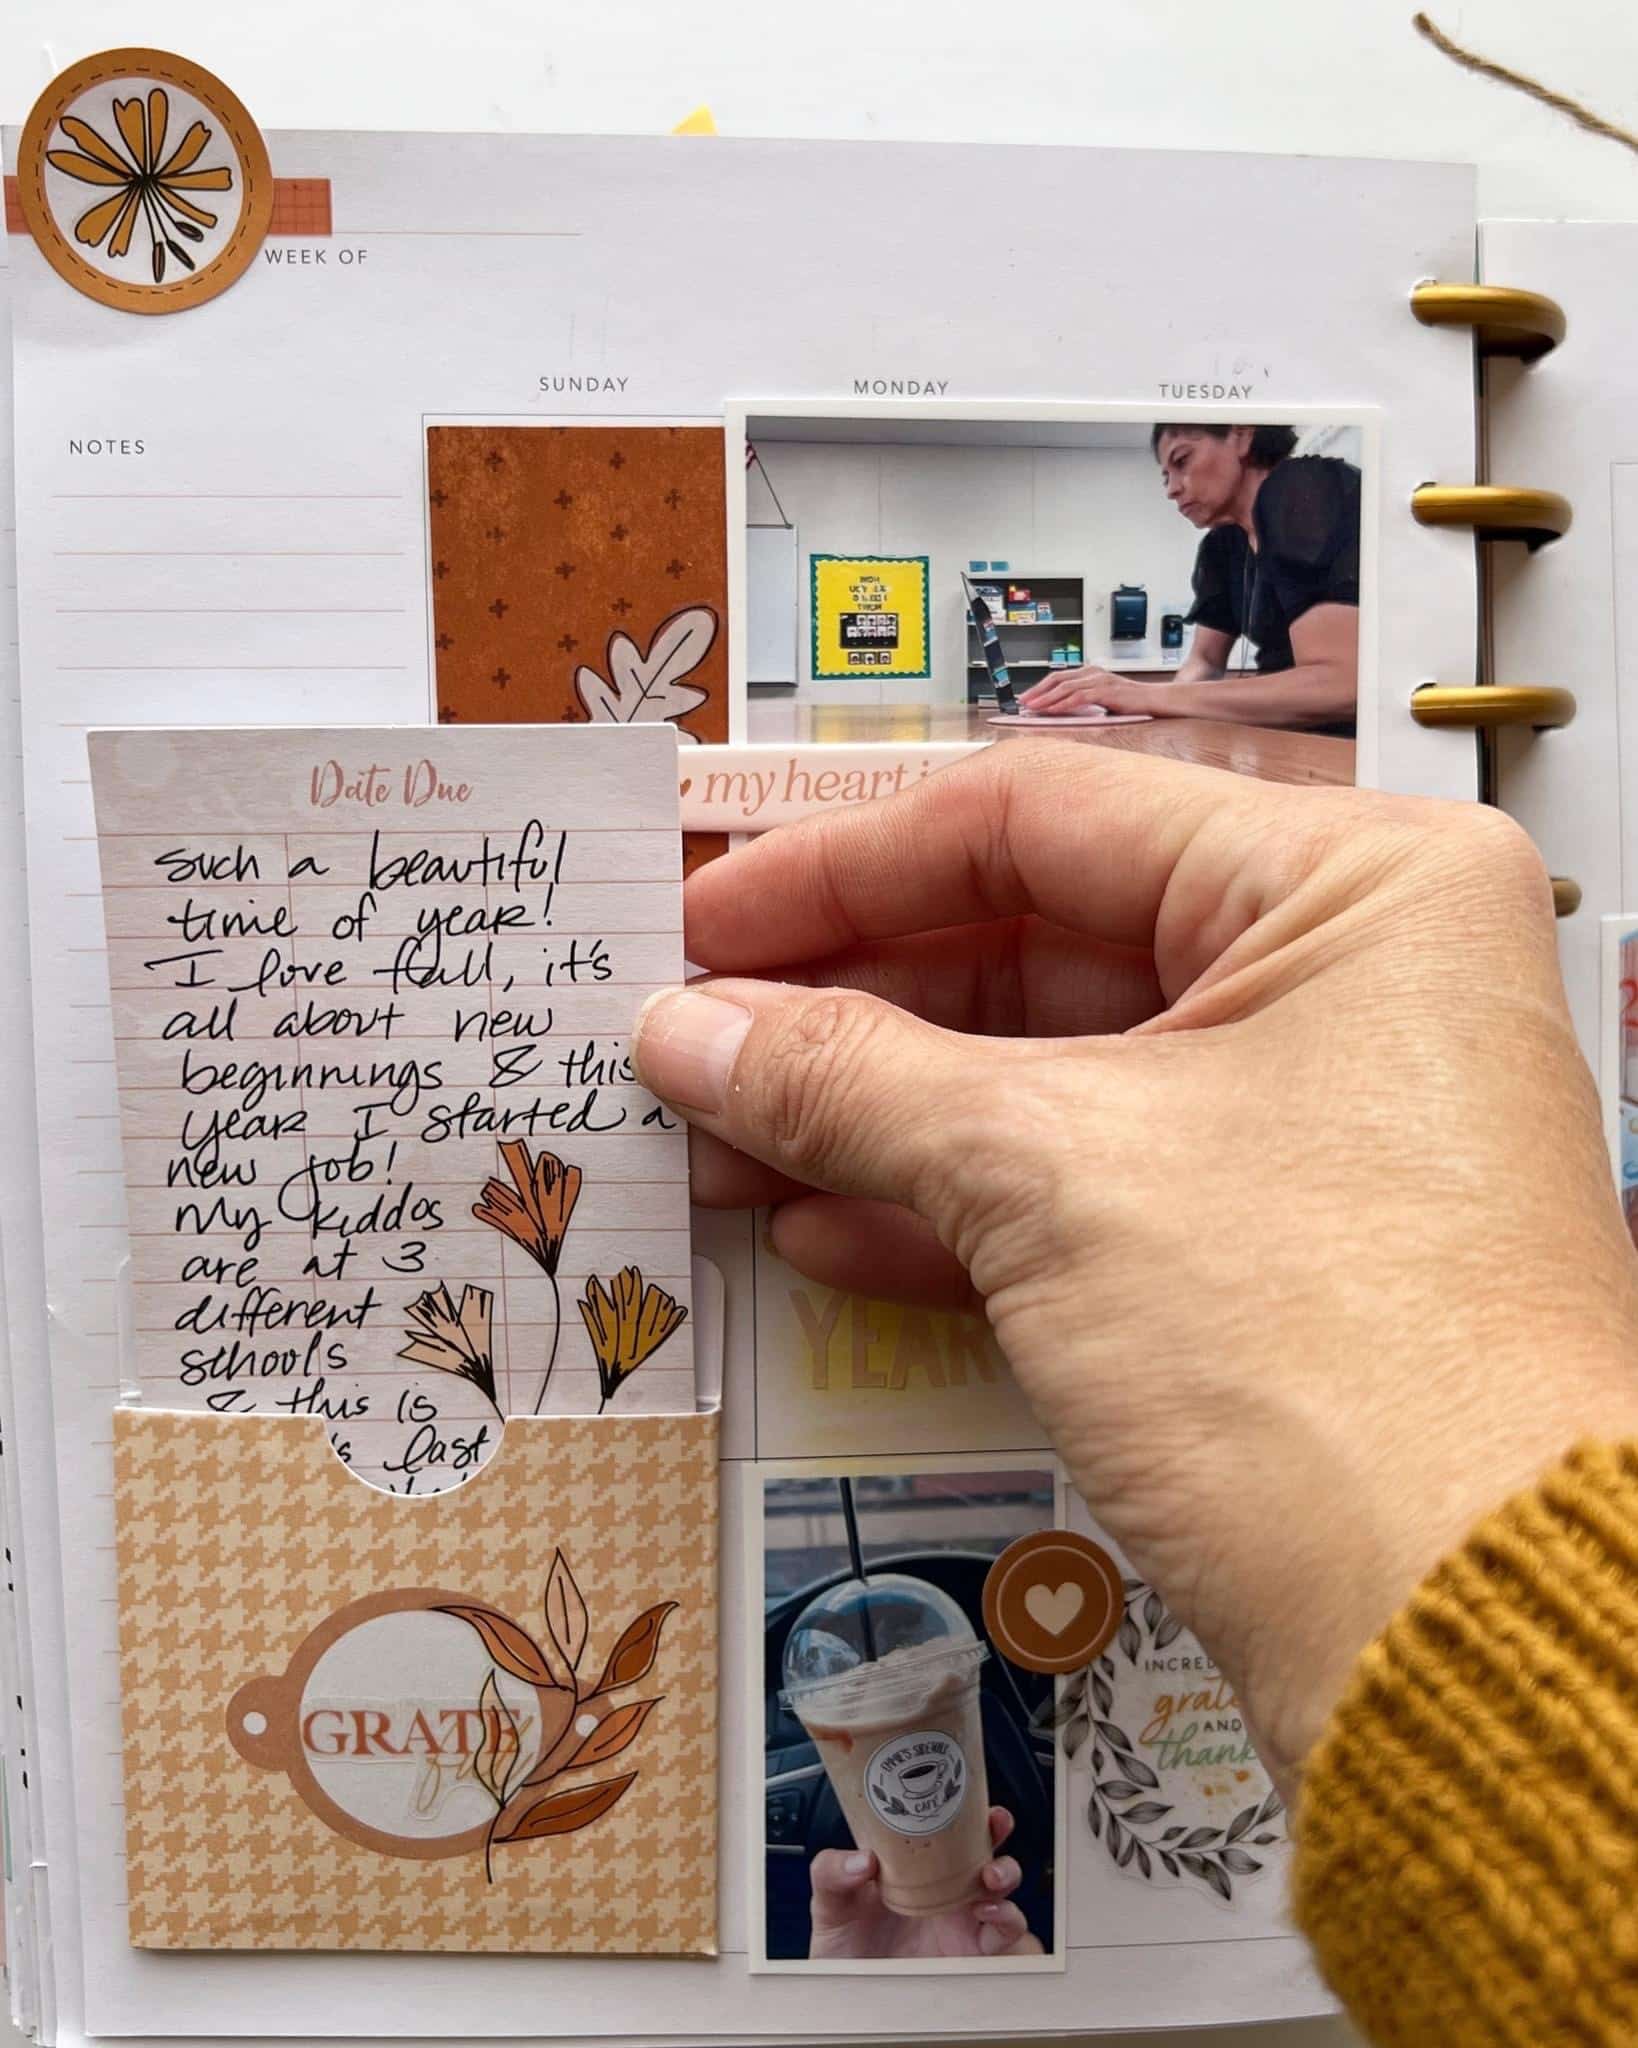 WEEK OF
SUNDAY
MONDAY
TUESDAY
NOTES
my heart
Date Due
such a beautiful
time of year!
I love fall, it's
all about new
beginnings & this
year I started a
new job!
My kiddos
are at 3
different
schools
& this is
last
YEAR
GRATE
ful
SIDEWALK
CAFE
grate
AND
thank